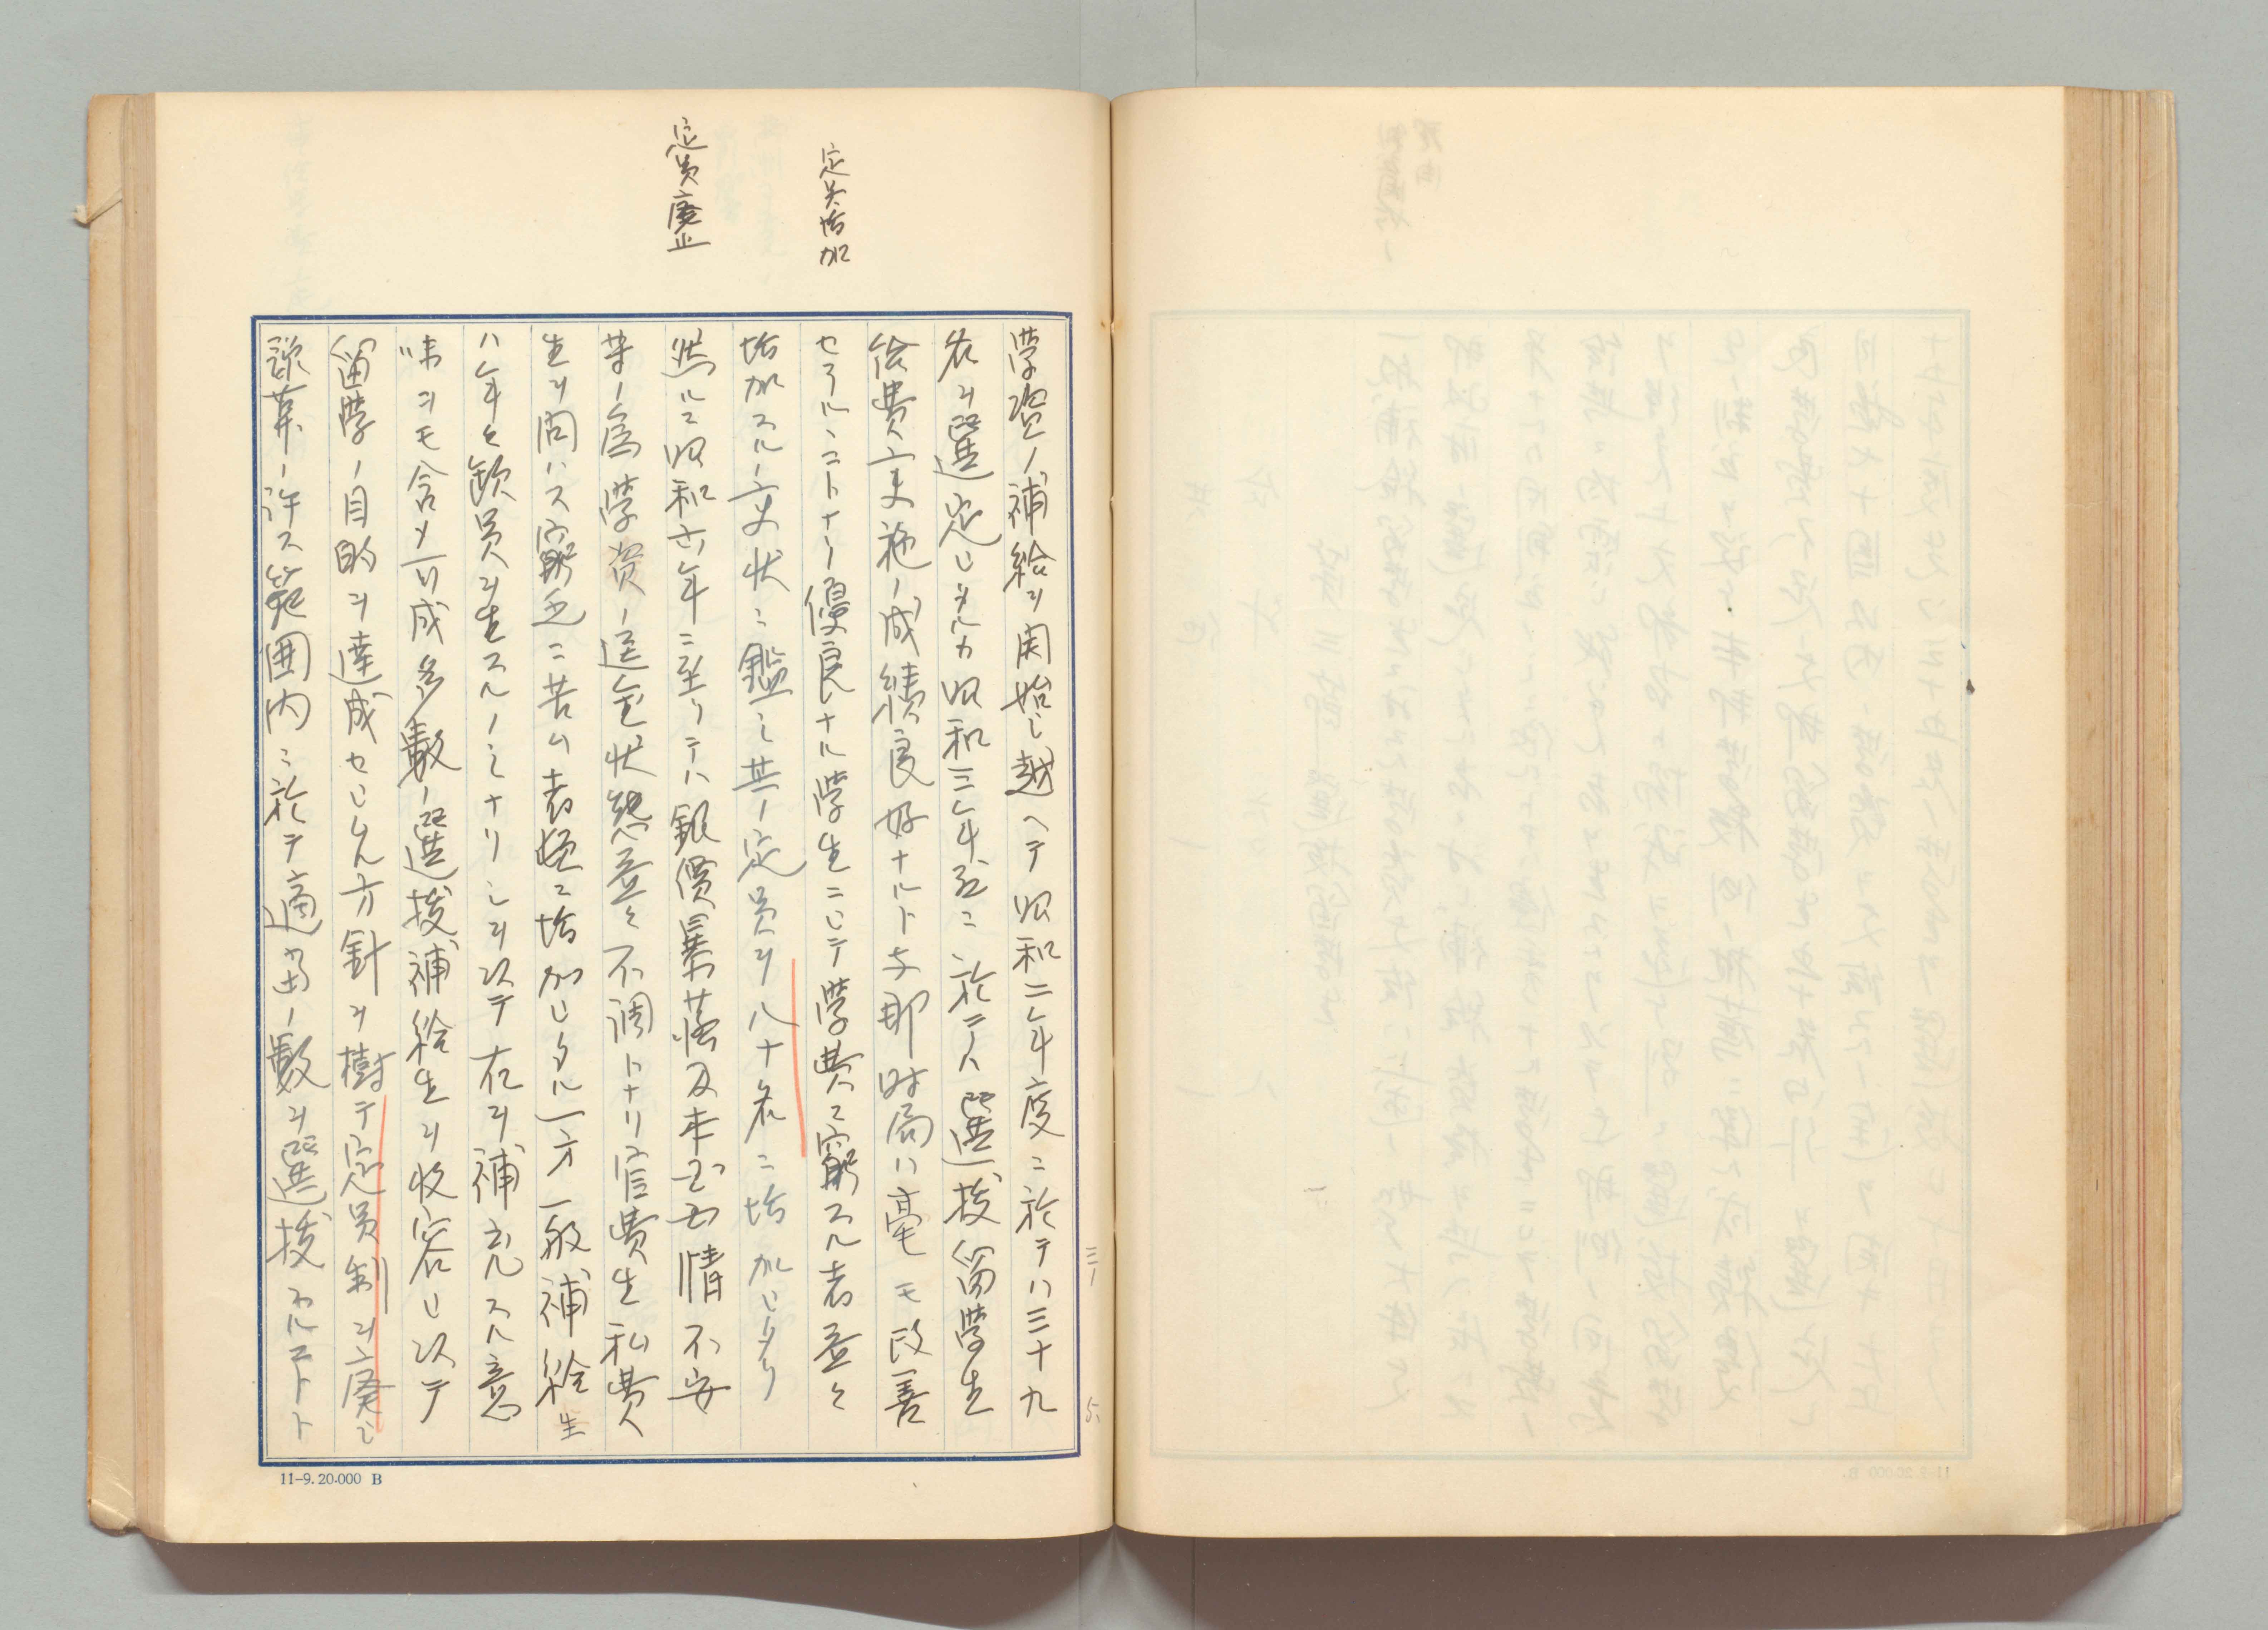 定員増加
定員廃止
学資ノ補給ヲ開始シ越ヘテ昭和二年度ニ於テハ三十九
名ヲ選定シタルカ昭和三年
ニ於テハ選抜留学生
給費実施ノ成績良好ナルト支那時局ハ毫モ改善
セラルルコトナク優良ナル学生ニシテ学費ニ窮スル者益々
増加スルノ実状ニ鑑ミ其ノ定員ヲ八十名ニ増加シタリ
然ルニ昭和六年ニ至リテハ銀価暴落及本国国情不安
等ノ為学資ノ送金状態益々不調トナリ官費生私費
生ヲ問ハス窮乏ニ苦ム者極ニ増加シタル一方一般補給生
ハ年々欠員ヲ生スルノミナリシヲ以テ右ヲ補充スル意
味ヲモ含メ可成多数ノ選抜補給生ヲ収容シ以テ
留学ノ目的ヲ達成セシムル方針ヲ樹テ定員制ヲ廃シ
予算ノ許ス範囲内ニ於テ適当ノ数ヲ選抜スルコトト
11-9. 20.000 B